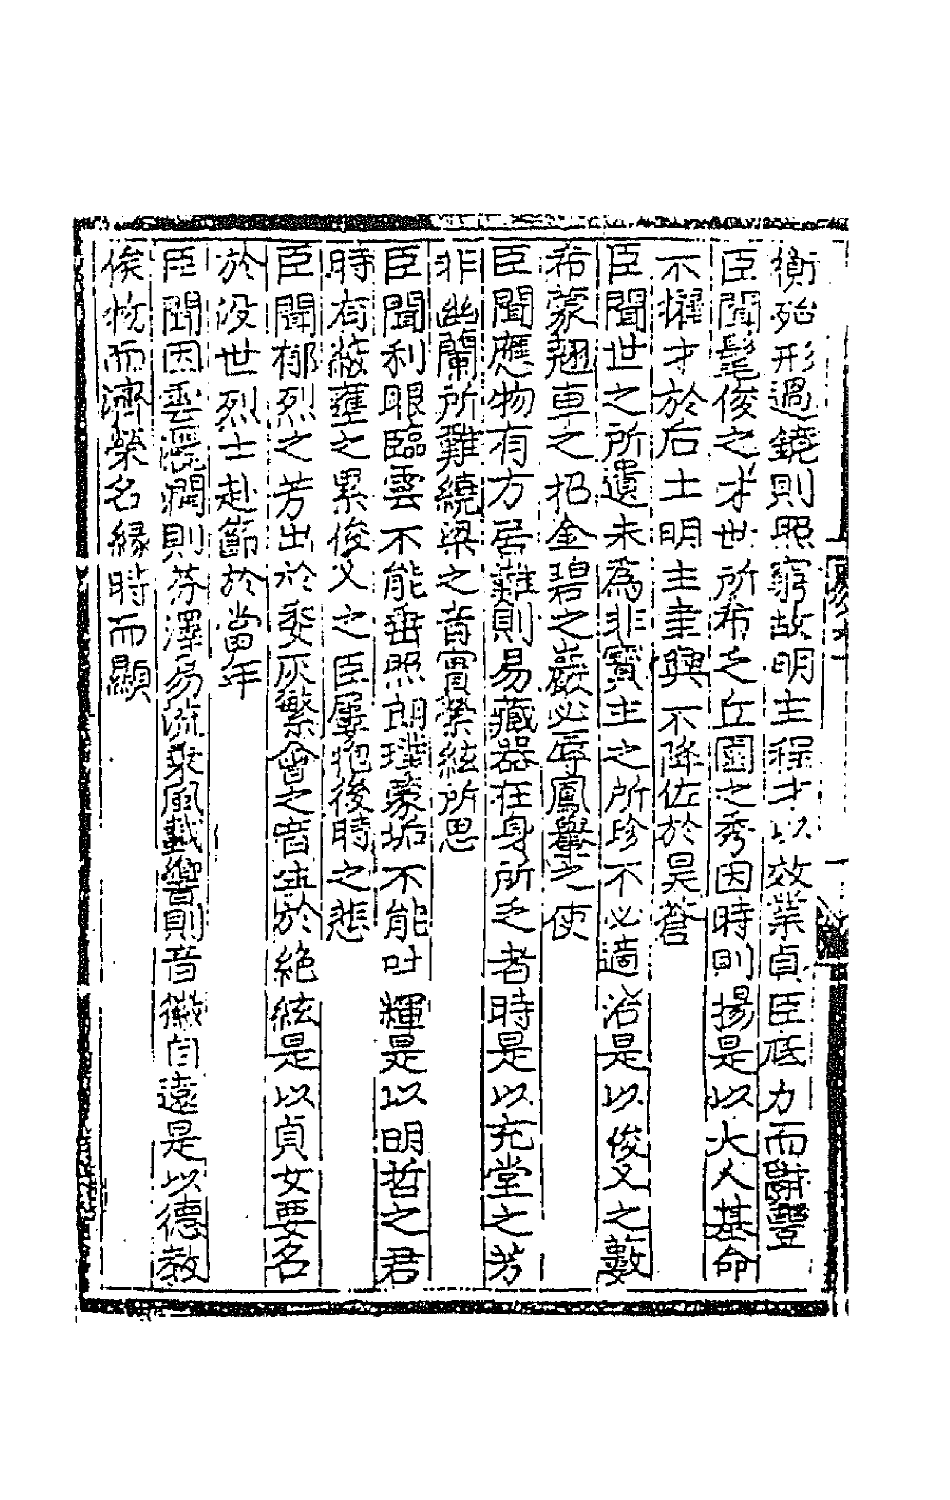 衡殆形過鏡則照窮故明主程才以效業貞臣底力而辭豐
臣聞髦俊之才世所希乏丘園之秀因時則揚是以大人基命
不擢才於后土明主聿興不降佐於昊蒼
臣聞世之所遺未為非寶主之所珍不必適治是以俊乂之藪
希蒙翹車之招金碧之巖必辱鳳舉之使
臣聞應物有方居難則易藏器在身所乏者時是以充堂之芳
非幽蘭所難繞梁之音實縈絃所思
臣聞利眼臨雲不能垂照朗璞蒙垢不能吐輝是以明哲之君
時有蔽壅之累俊乂之臣屢抱後時之悲
臣聞郁烈之芳出於委灰繁會之音生於絶絃是以貞女要名
於没世烈士赴節於當年
臣聞因雲灑潤則芬澤易流乘風載響則音徽自遠是以德教
俟物而濟榮名緣時而顯